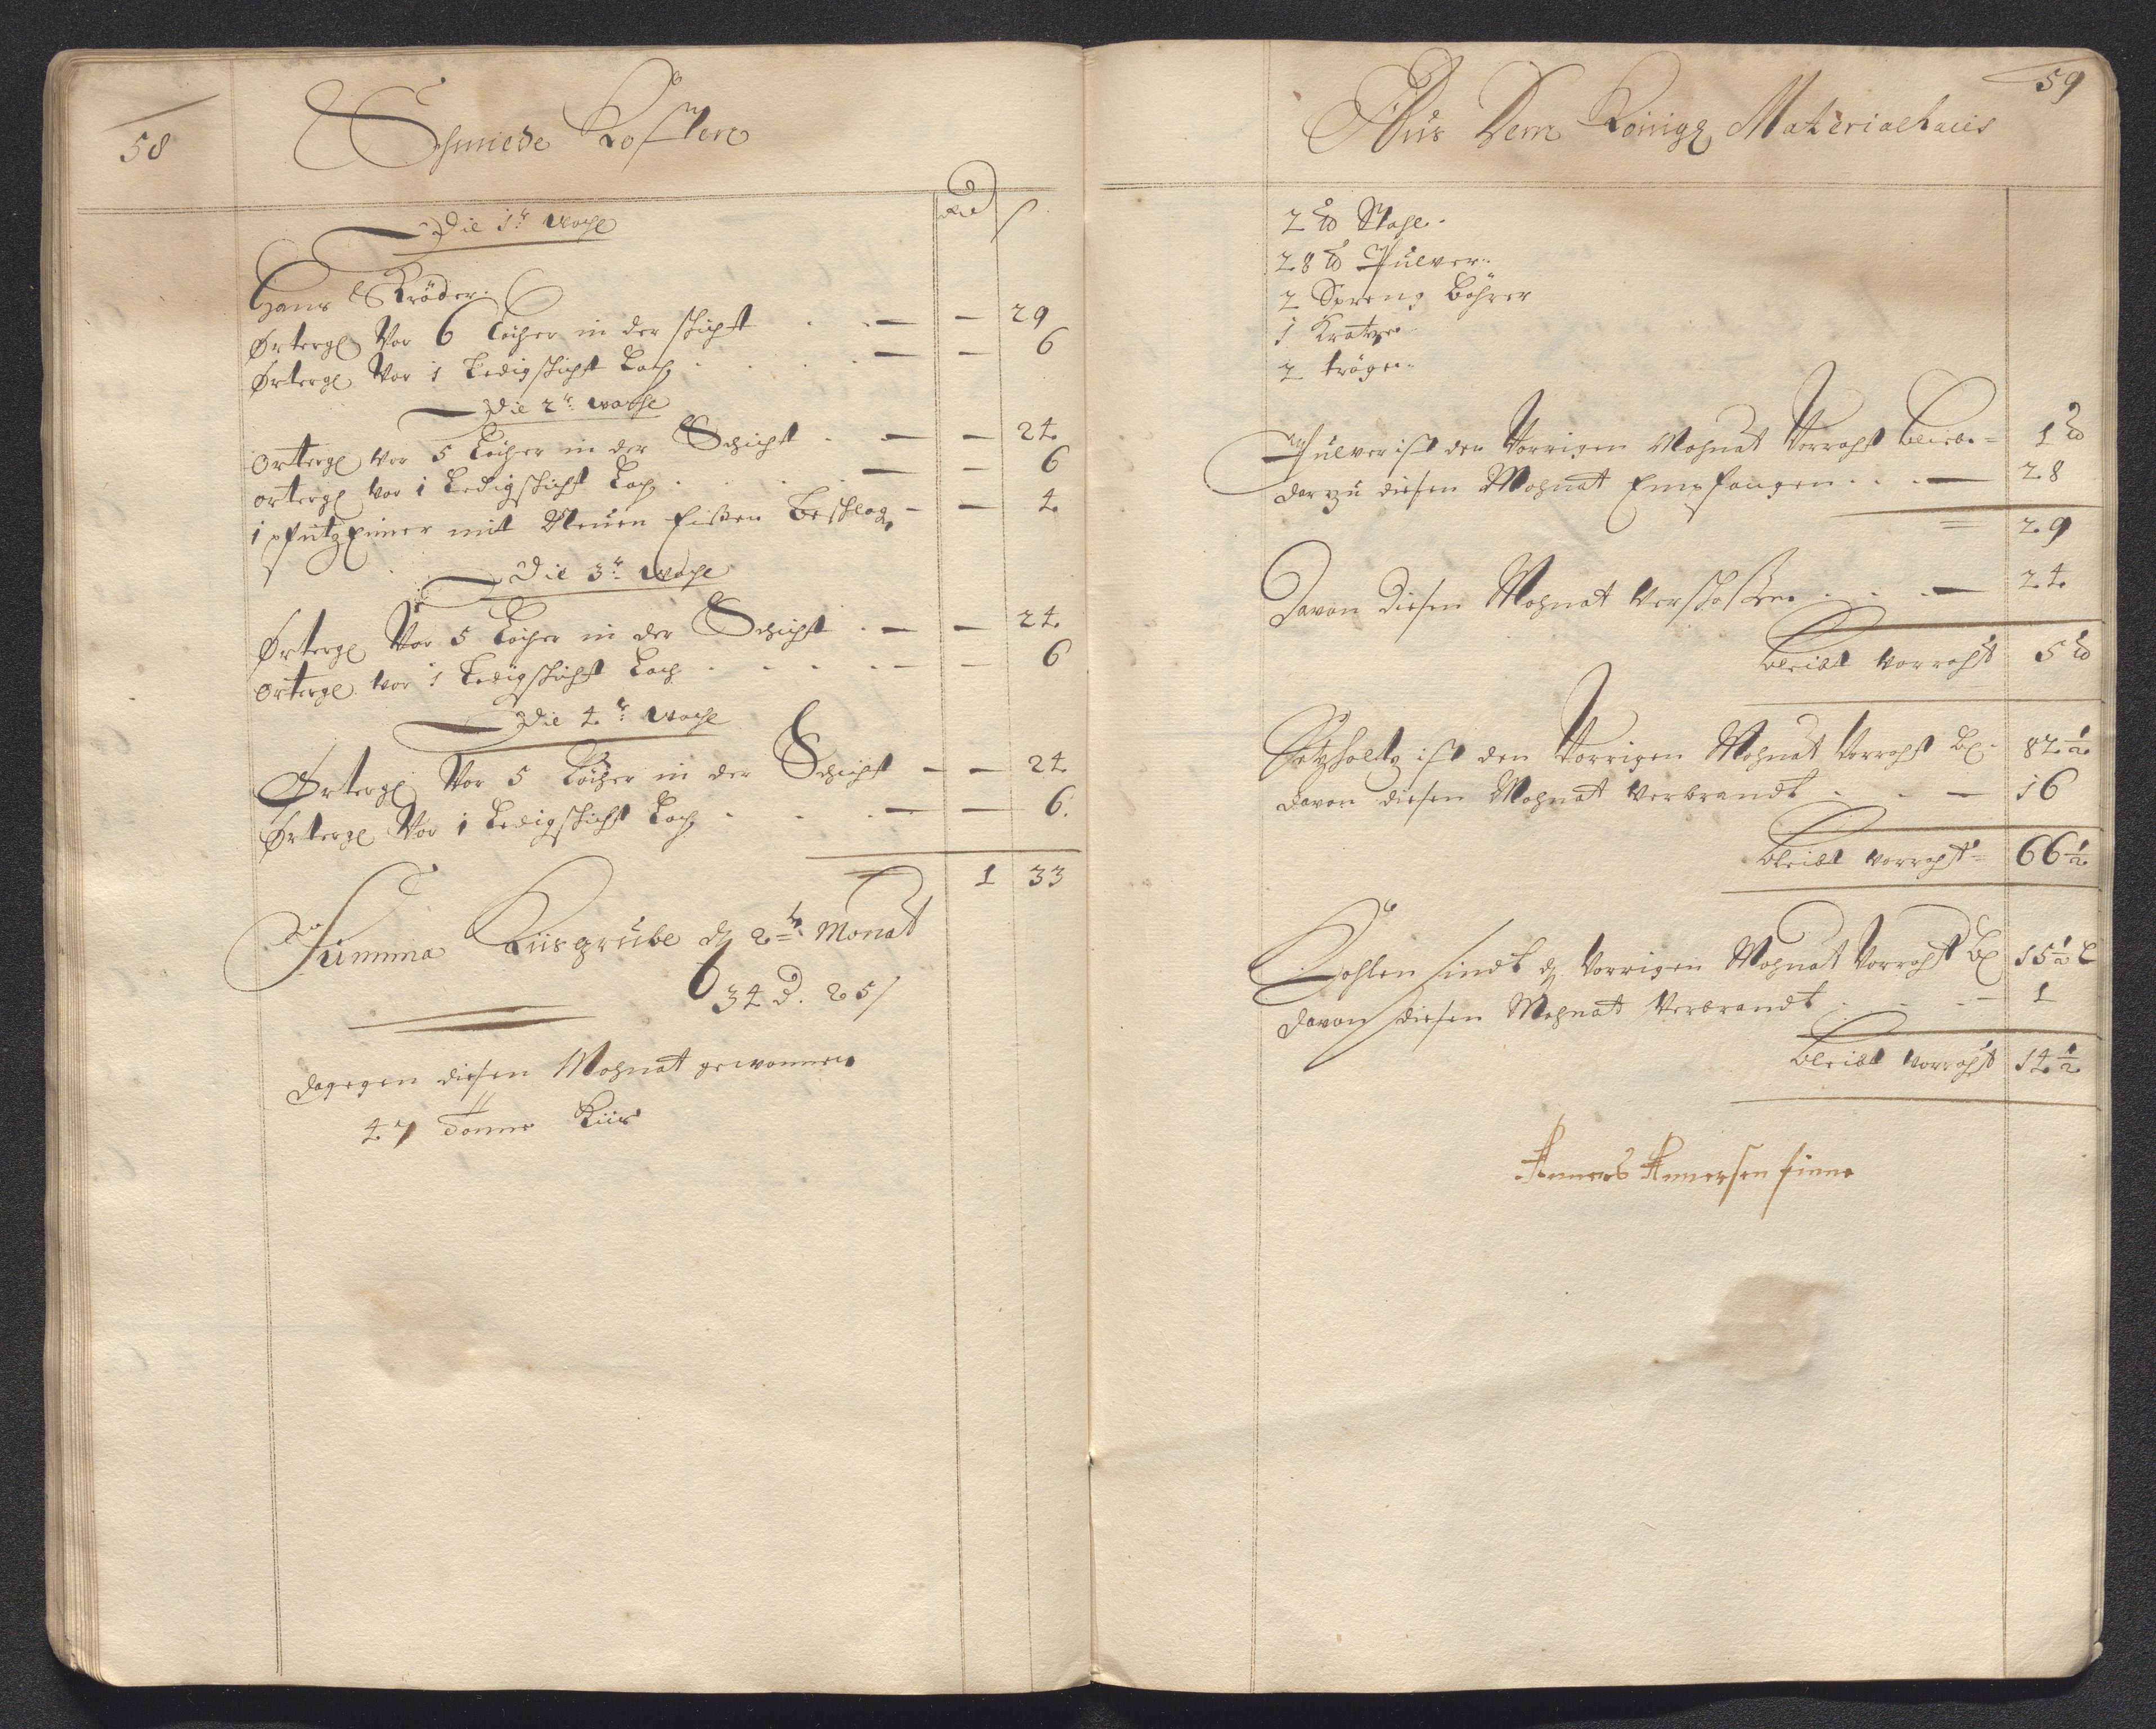 58
Schmiede Kosten
Rd ß
Die 1te Woche
Hans Ströder.
Örtergl Vor 6 Löcher in der schicht — — 29
Örtergl Vor 1 Ledigschicht Loch — — 6
Die 2te woche
Örtergl vor 5 Löcher in der Schicht — — 24
örtergl vor 1 Ledigschicht Loch — — 6
1 pfützEimer mit Neuen Eisen Beschlag — — 4
Die 3te Woche
Örtergl Vor 5 Löcher in der Schicht — — 24
örtergl vor 1 Ledigschicht Loch — — 6
Die 4te Woche
Örtergl Vor 5 Löcher in der Schicht — — 24
Örtergl Vor 1 Ledigschicht Loch — — 6.
1 33
Summa Kiisgrube d 2te Monat
34 d. 25ß
dagegen diesen Mohnat gewonnen
47 Tonne Kiis
59
Aus Dem Königl Materialhaus
2 ℔ Stahl.
28 ℔ Pulver.
2 Spreng Bohrer
1 Kratze
2 tröge.
Pulver ist den Vorrigen Mohnat Vorraht bliebe = 1 ℔
darzu diesen Mohnat Empfangen — 28
= 29
Davon diesen Mohnat Verschossen — 24
bleibt Vorraht 5 ℔
Setzholtz ist den Vorrigen Mohnat Vorraht bl. 82½
davon diesen Mohnat Verbrandt — 16
bleibt vorraht = 66½
Kohlen sindt d Vorrigen Mohnat Vorraht bl 15½ L
davon diesen Mohnat Verbrandt — 1
bleibt vorraht 14½
Anners Annersen finne